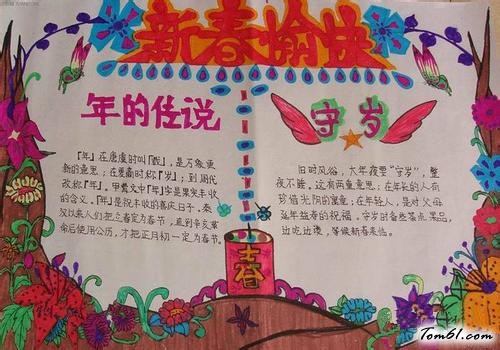 新春愉快
年的传说
「年」在唐虞时叫「载」，是万象更
新的意思；在夏商时称「岁」；到周代
改称「年」。甲骨文中「年」字是果实丰收
的含义。「年」是祝丰收的喜庆日子。秦
汉以来人们把立春定为春节，直到辛亥革
命后使用公历，才把正月初一定为春节。
守岁
旧时风俗，大年夜要“守岁”，整
夜不睡。这有两重意思：在年长的人有
珍惜光阴的寓意；在年轻人，是对父母
延年益寿的祝福。守岁时备些茶点果品，
边吃边谈，等候新春来临。
Tom61.com